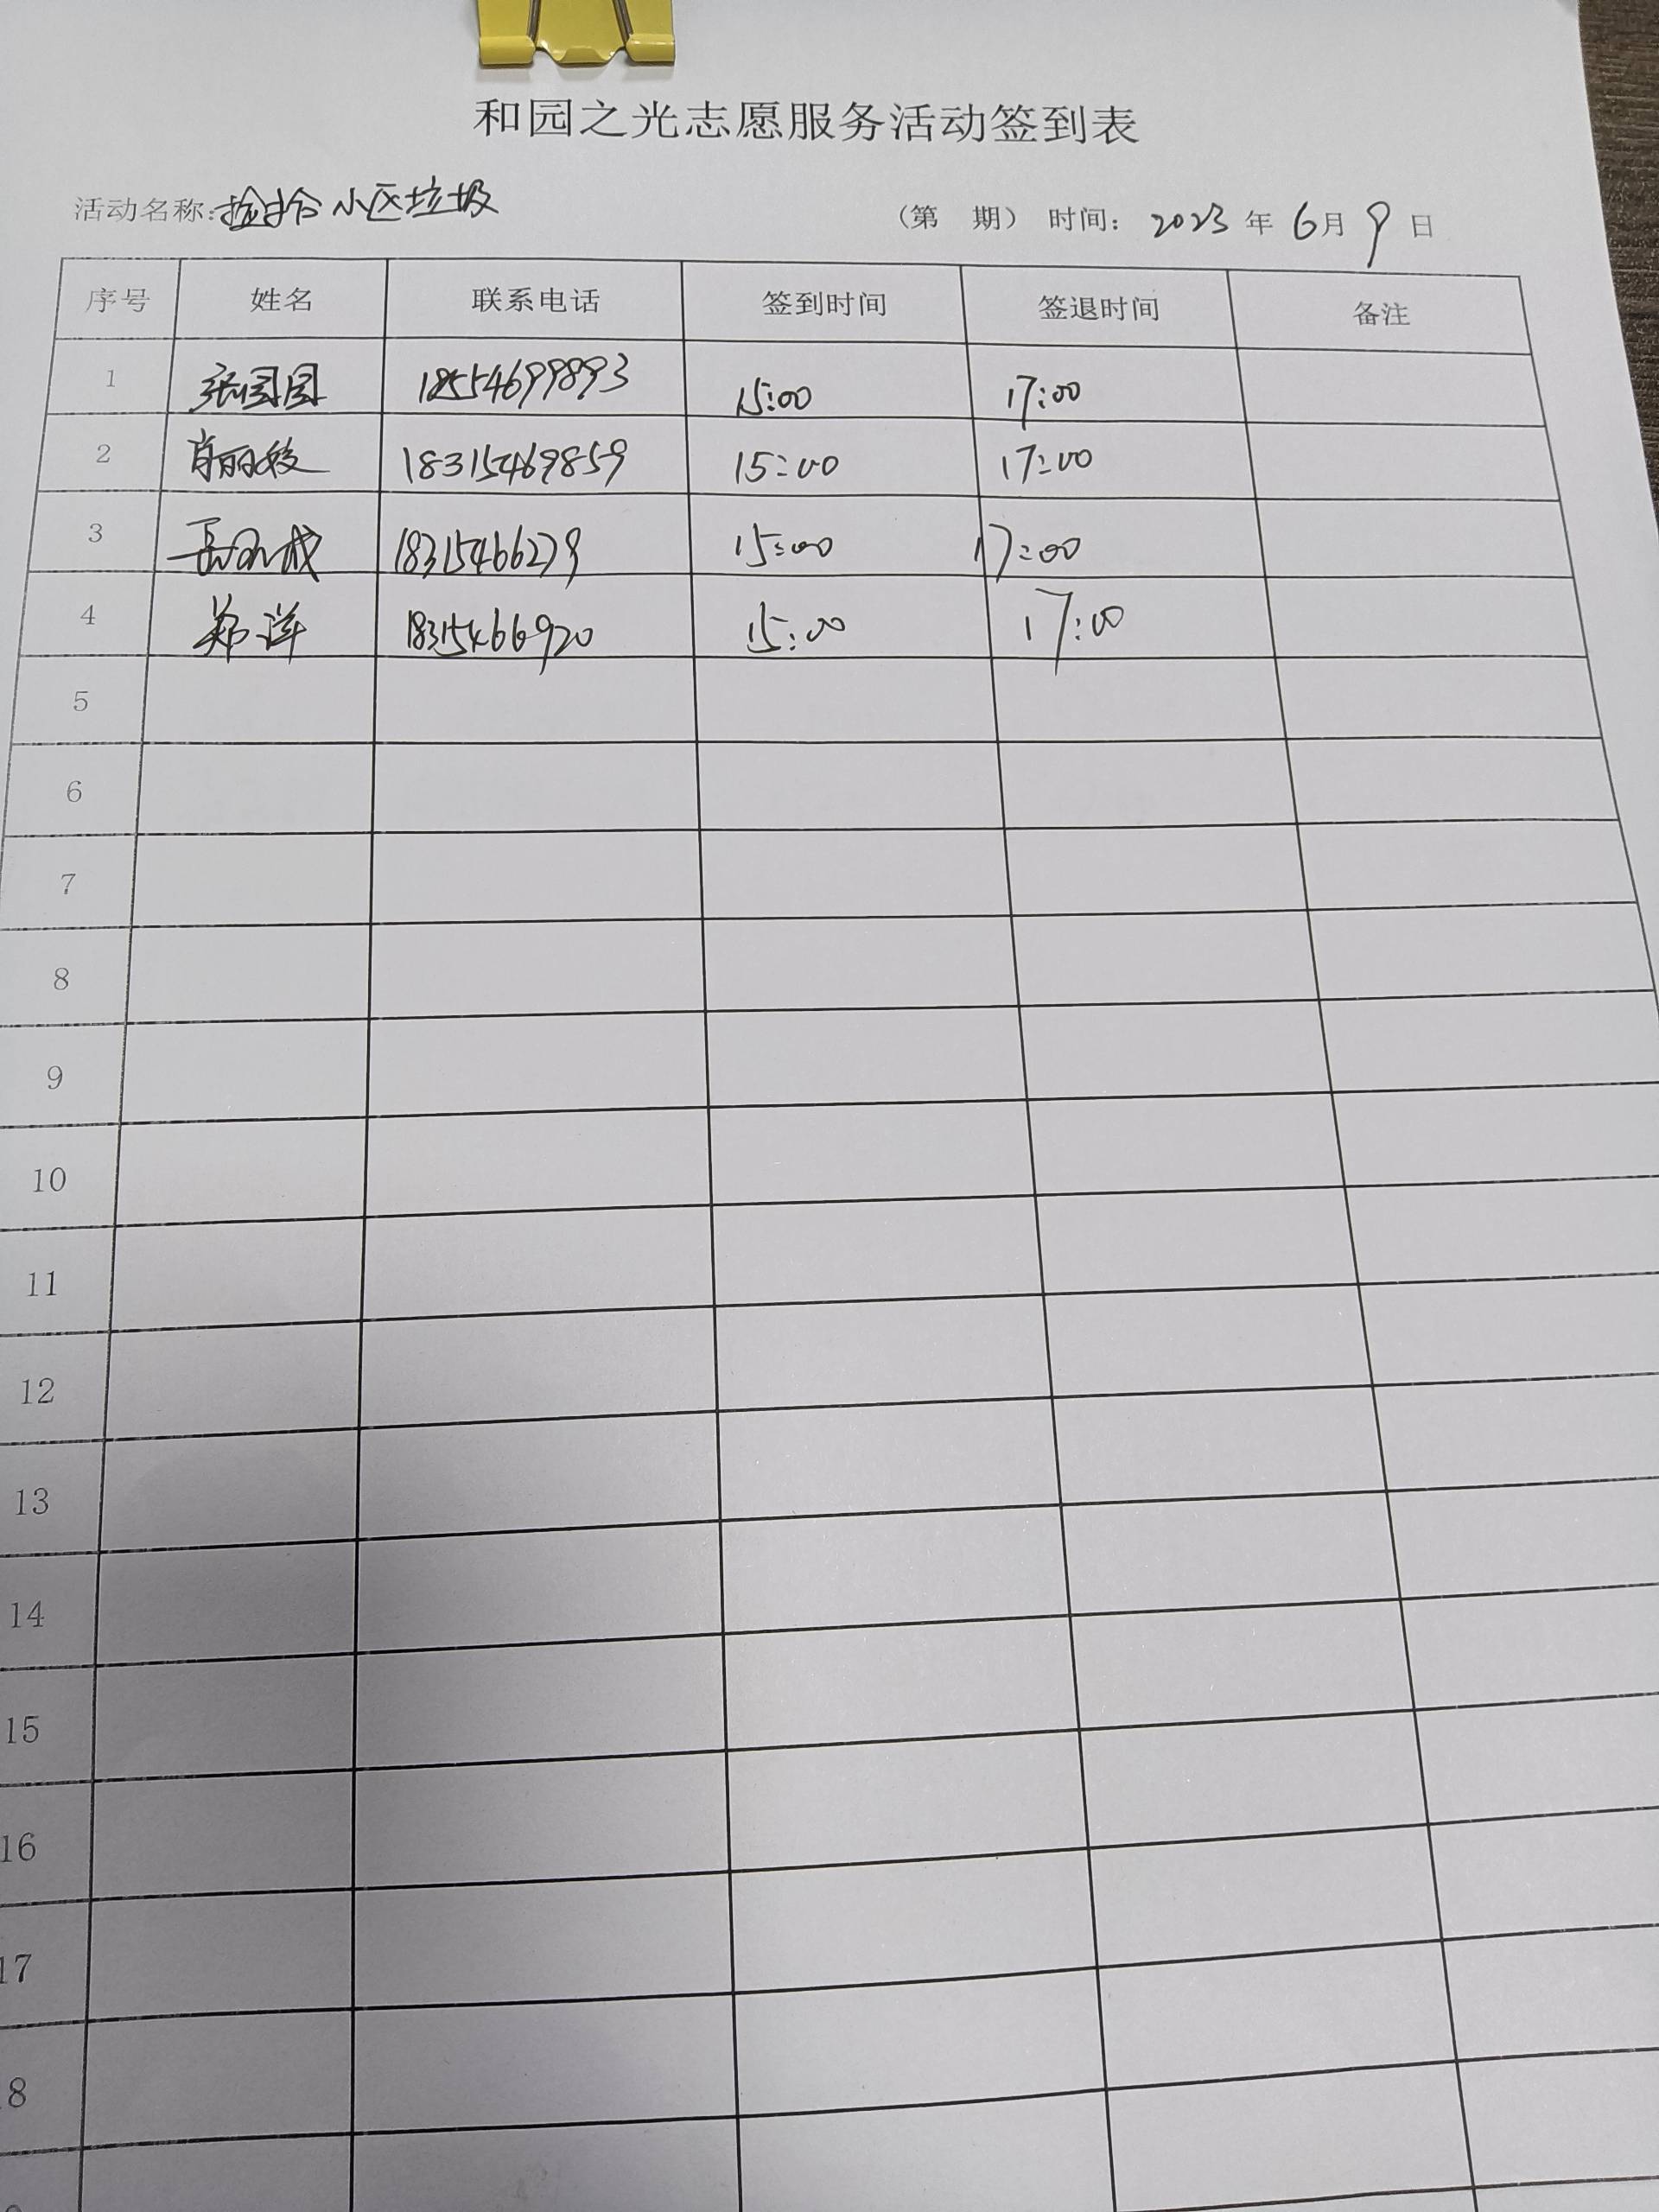 和园之光志愿服务活动签到表
活动名称:捡拾小区垃圾 （第 期） 时间: 2023 年 6月 9 日
序号 姓名 联系电话 签到时间 签退时间 备注
1 张園園 18554699893 15:00 17:00
2 肖丽 18315469859 15:00 17:00
3 18315466279 15:00 17:00
4 郑洋 18315466920 15:00 17:00
5
6
7
8
9
10
11
12
13
14
15
16
17
8